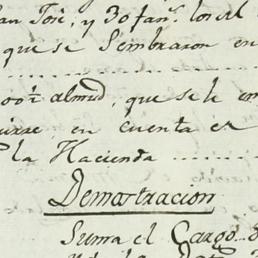 San José, y 30 fan.s los al
que se Sembraron en
almud, que se le
en cuenta es
la Hacienda
Demostracion
Suma el Cargo